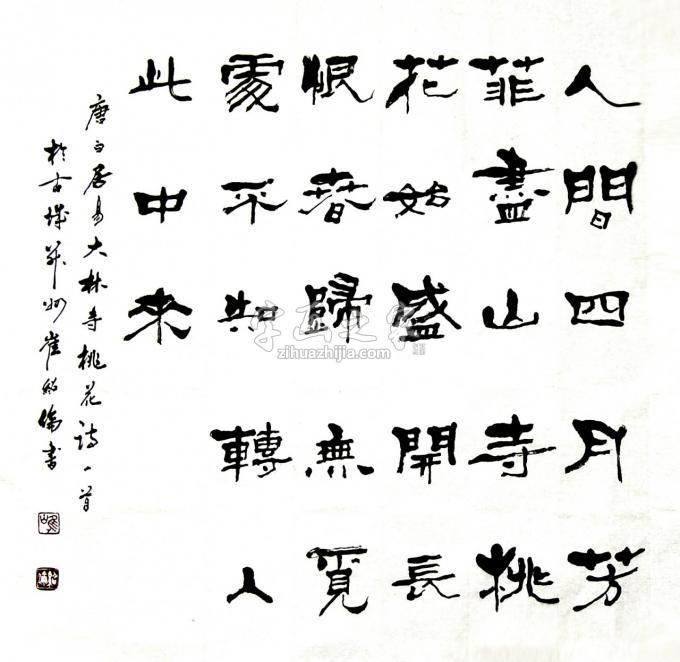 人間四月芳
菲盡山寺桃
花始盛開長
恨春歸無覓
處不知轉入
此中來
唐白居易大林寺桃花詩一首
於古城州崔倫書
字画之家
zihuazhijia.com